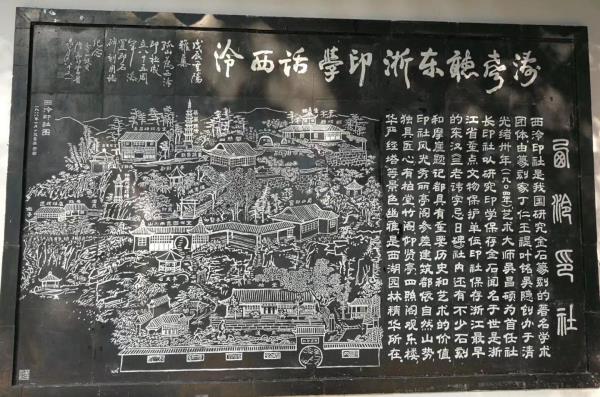 涛聲聽东浙印學話西泠
西泠印社
西泠印社是我国研究金石篆刻的著名学术
团体由篆刻家丁仁王禔叶铭吴隐创办于清
光绪卅年(一九〇四年)艺术大师吴昌硕为首任社
长印社以研究印学保存金石闻名于世是浙
江省重点文物保护单位印社保存浙江最早
的东汉三老讳字忌日碑社内还有不少石刻
和摩崖题记都具有重要历史和艺术的价值
印社风光秀丽亭阁参差建筑都依自然山势
独具匠心有柏堂竹阁仰贤亭四照阁观乐楼
华严经塔等景色幽雅是西湖园林精华所在
戊辰重陽
雅集
孤山爲西泠
印社成
立八十五周
年
纪念
西泠印社图